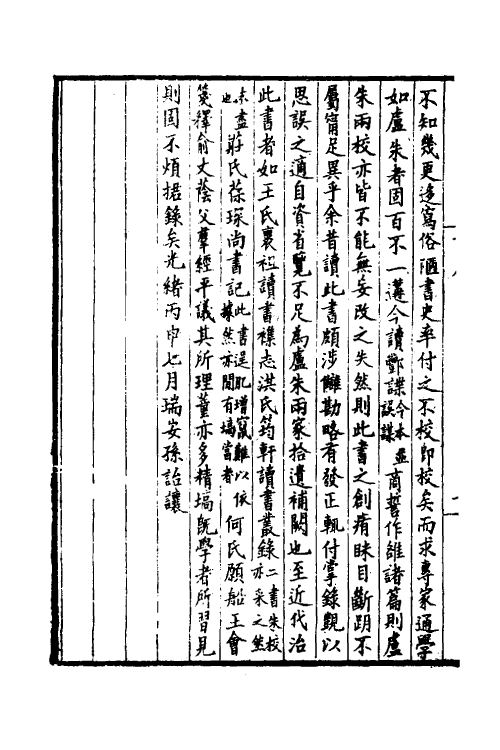 不知幾更迻寫俗陋書史率付之不校即校矣而求專家通學
如盧朱者固百不一遘今讀酆謀今本並誤謀商誓作雒諸篇則盧
朱兩校亦皆不能無妄改之失然則此書之創痏眯目斷跀不
屬甯足異乎余昔讀此書頗涉讎勘略有發正輒付掌錄覬以
思誤之適自資省覽不足為盧朱兩家拾遺補闕也至近代治
此書者如王氏褱祖讀書襍志洪氏筠軒讀書叢錄二書朱校亦采之然
未盡也莊氏葆琛尚書記此書逞肊增竄難以依據然亦閒有塙當者何氏願船王會
箋釋俞丈蔭父羣經平議其所理董亦多精塙既學者所習見
則固不煩捃錄矣光緒丙申七月瑞安孫詒讓